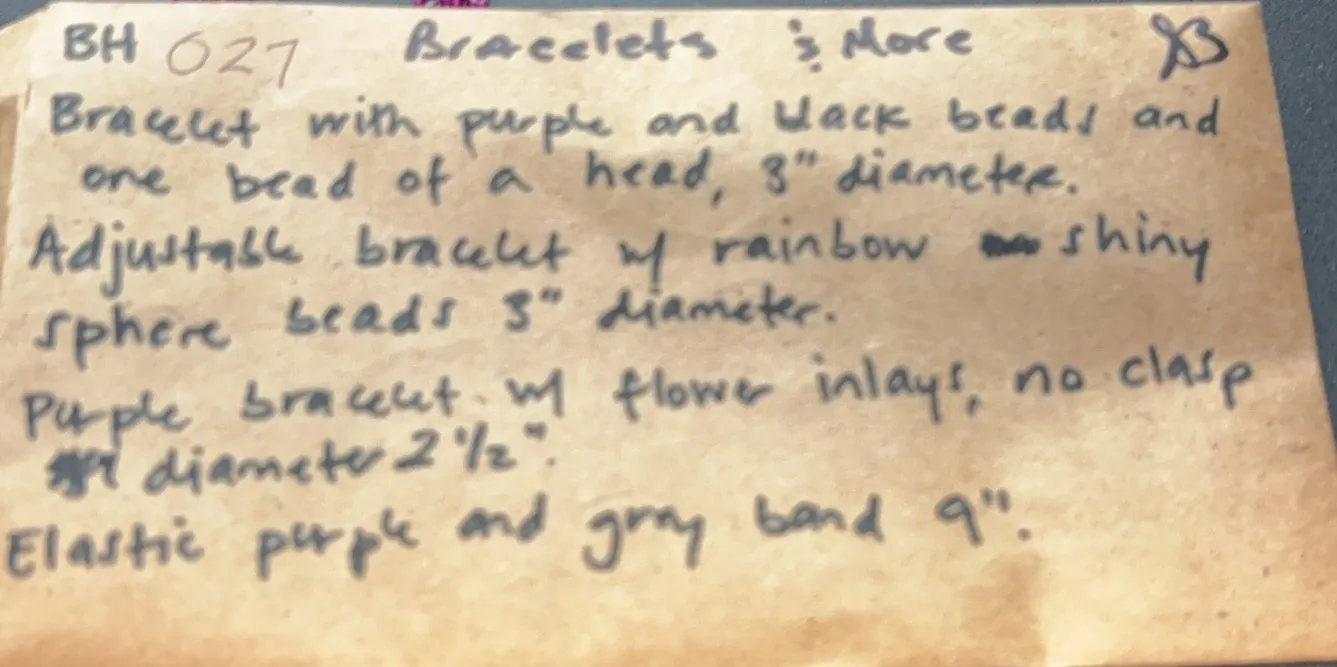 BH 027 Bracelets & More
Bracelet with purple and black beads and
one bead of a head, 3" diameter.
Adjustable bracelet w/ rainbow shiny
sphere beads 3" diameter.
Purple bracelet w/ flower inlays, no clasp
diameter 2 1/2".
Elastic purple and gray band 9".